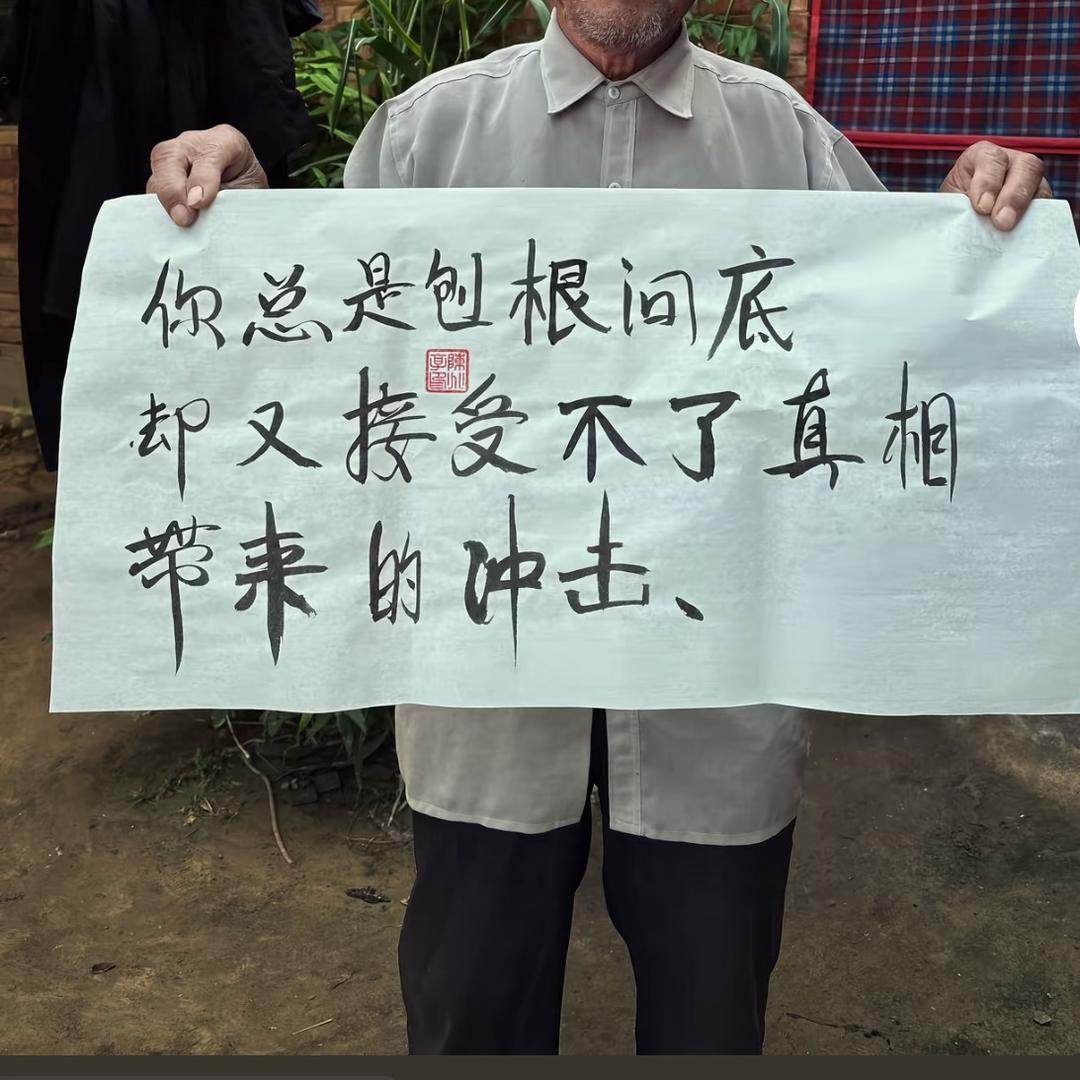 你总是刨根问底
却又接受不了真相
带来的冲击、